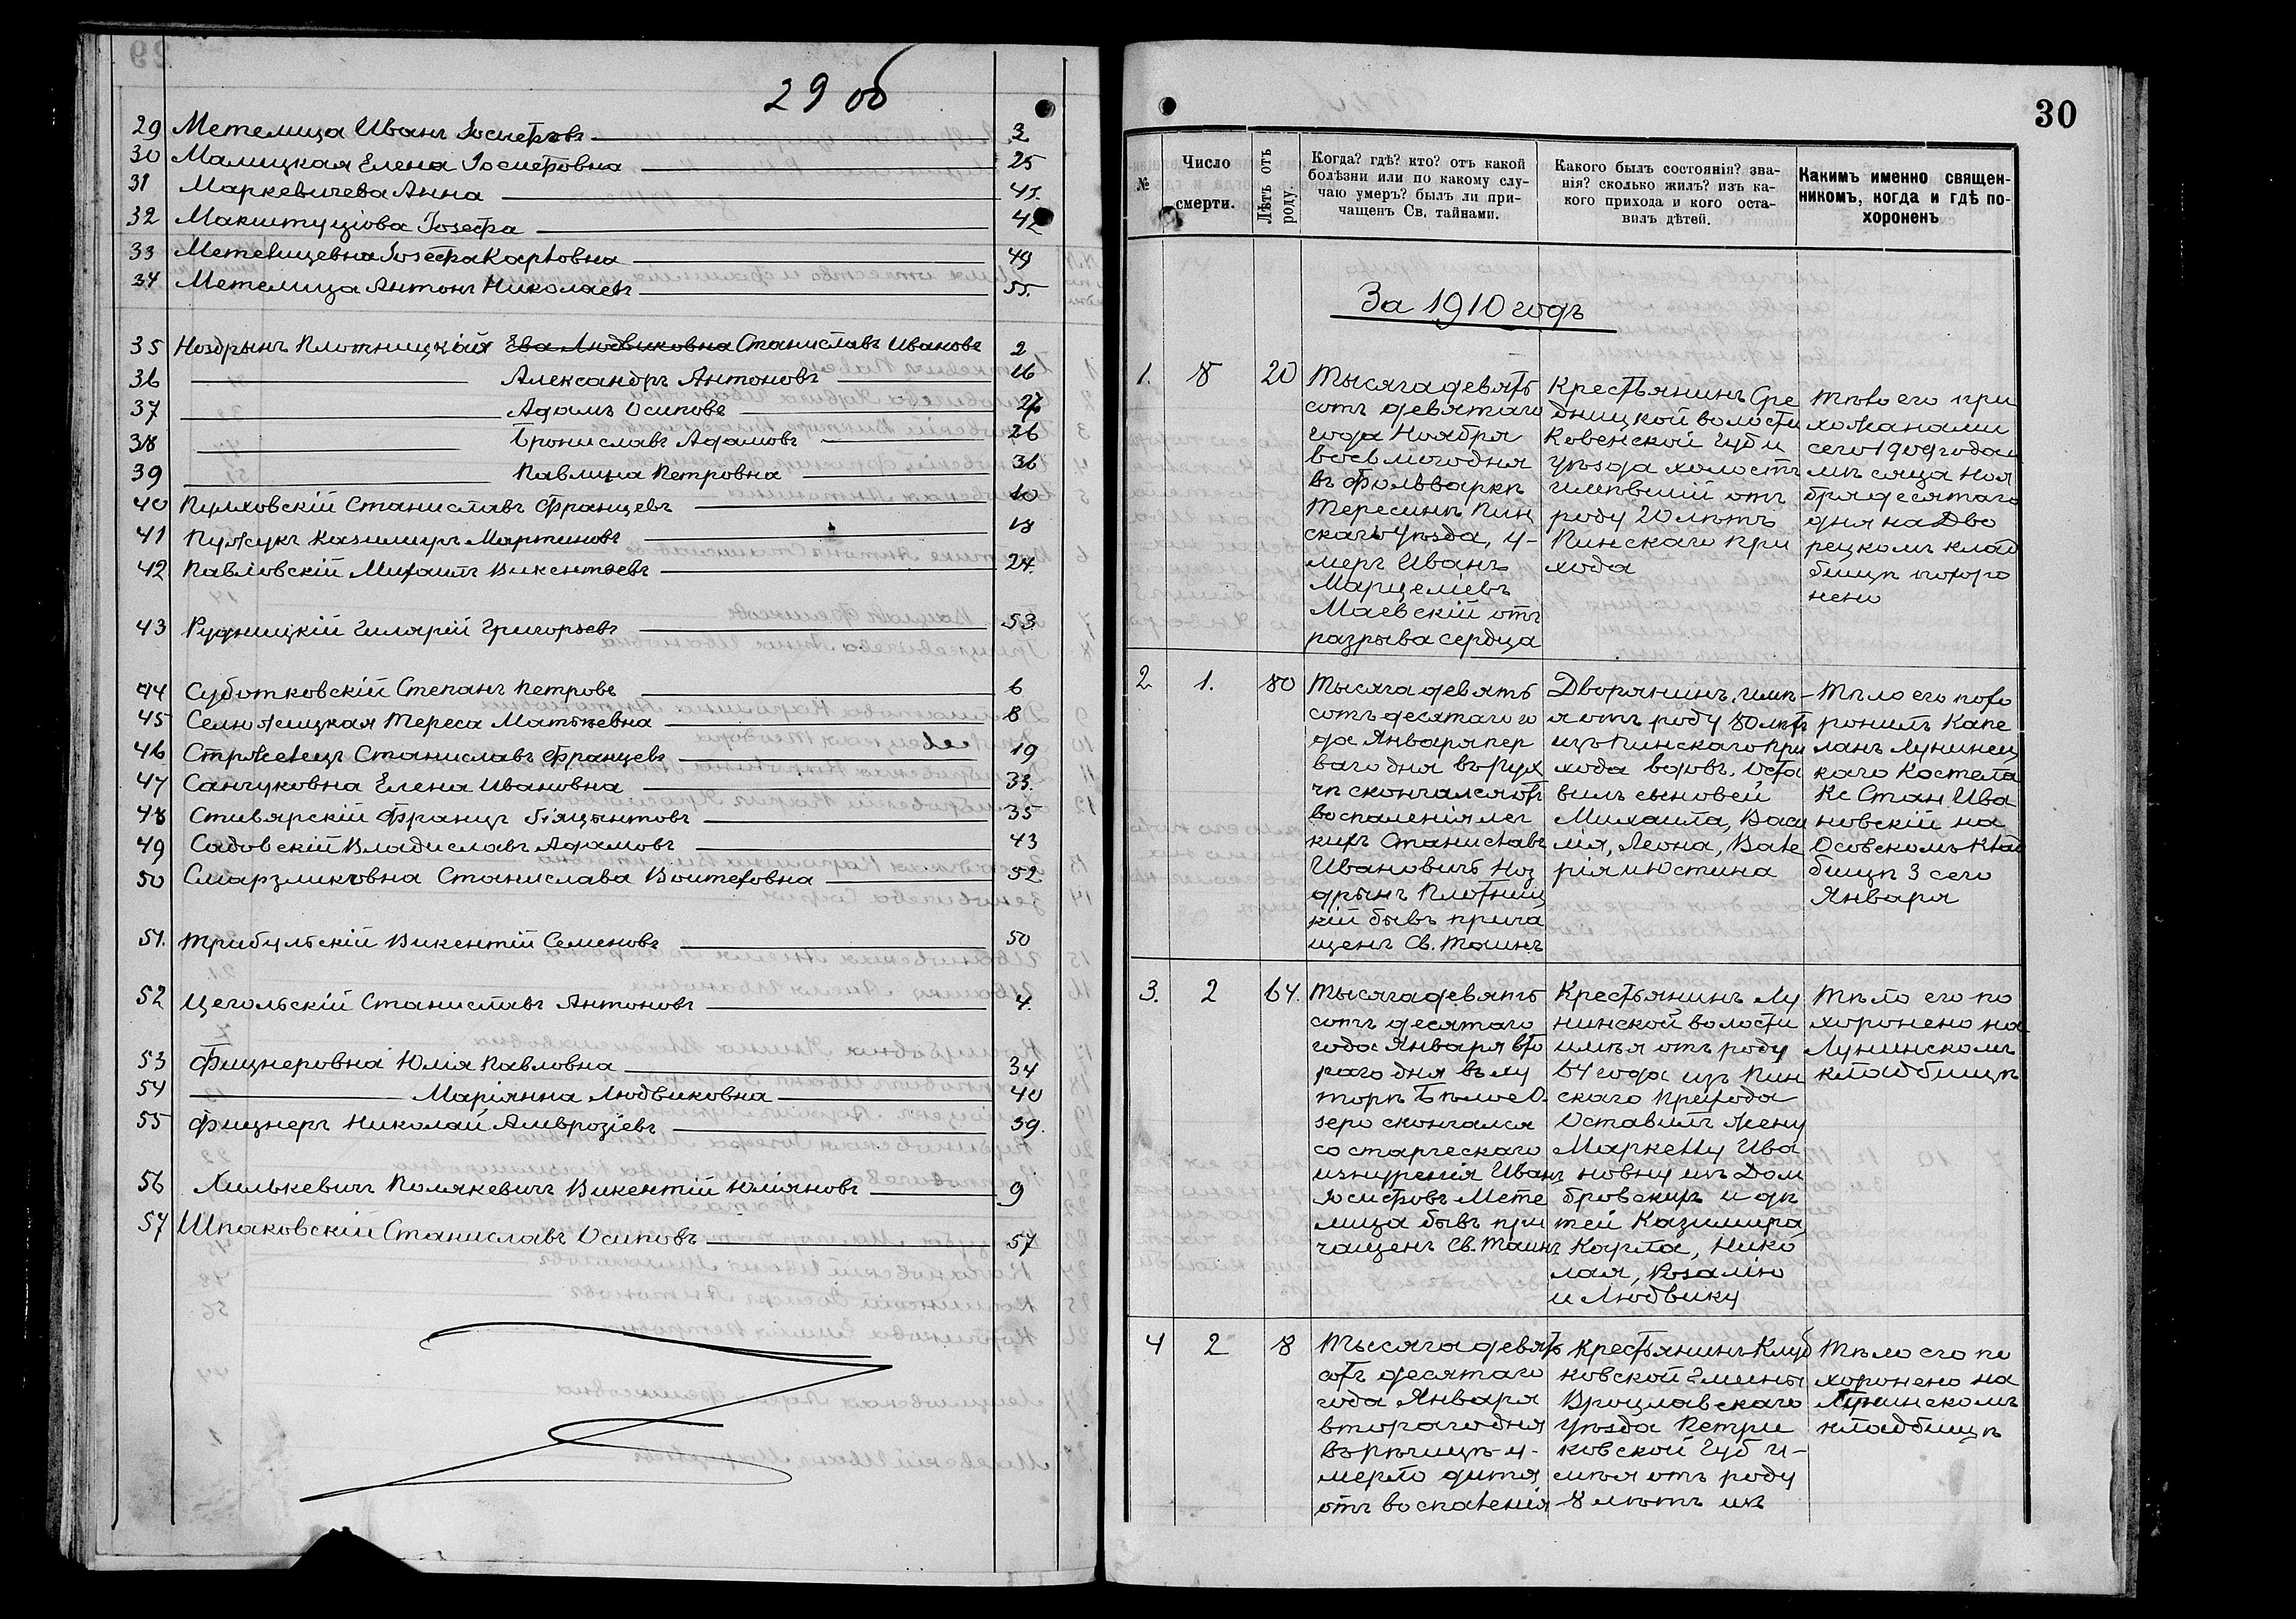 29 об
29 Метелица Иванъ Іосифовъ 3
30 Малицкая Елена Іосифовна 25
31 Маркевичева Анна 45.
32 Макштуціова Іозефа 42
33 Метелицевна Іозефа Карловна 49
34 Метелица Антонъ Николаевъ 55.
35 Ноздрынъ Плотницкій Ева Людвиковна Станиславъ Ивановъ 2
36 Александръ Антоновъ 16
37 Адамъ Осиповъ 27
38 Брониславъ Адамовъ 26
39 Павлина Петровна 36
40 Пулховскій Станиславъ Францевъ 10
41 Пужукъ Казимиръ Мартиновъ 18
42 Павловскій Михаилъ Викентьевъ 24.
43 Рудницкій Гилярій Григорьевъ 53.
44 Суботковскій Степанъ Петровъ 6
45 Селюжицкая Тереса Матѣевна 8
46 Стржелецъ Станиславъ Францевъ 19
47 Санчуковна Елена Ивановна 33.
48 Стивярскій Францъ Гіяцынтовъ 35
49 Садовскій Владиславъ Адамовъ 43
50 Смарзликовна Станислава Войтеховна 52
51. Трибульскій Викентій Семеновъ 50
52 Цегольскій Станиславъ Антоновъ 4.
53 Фицнеровна Юлія Павловна 34
54 Маріянна Людвиковна 40
55 Фицнеръ Николай Амврозіевъ 39.
56 Хилькевичъ Полякевичъ Викентій Юліяновъ 9
57 Шпаковскій Станиславъ Осиповъ 57
30
№
Число смерти.
Лѣтъ отъ роду.
Когда? гдѣ? кто? отъ какой
болѣзни или по какому слу-
чаю умеръ? былъ ли при-
чащенъ Св. тайнами.
Какого былъ состоянія? зва-
нія? сколько жилъ? изъ ка-
кого прихода и кого оста-
вилъ дѣтей.
Какимъ именно священ-
никомъ, когда и гдѣ по-
хороненъ
За 1910 годъ
1. 8 20
Тысяча девять
сотъ девятаго
года Ноября
восьмого дня
въ фольваркѣ
Тересинѣ Пин
скаго уѣзда, у-
меръ Иванъ
Марцеліевъ
Маевскій отъ
разрыва сердца
Крестьянинъ Сре
дницкой волости
Ковенской губ и
уѣзда холостъ
имѣвшій отъ
роду 20 лѣтъ
Пинскаго при
хода
Тѣло его при
хожанами
сего 1909 года
мѣсяца Ноя
бря десятаго
дня на Дво
рецкомъ клад
бищѣ похоро
нено
2 1. 80
Тысяча девять
сотъ десятаго го
да Января пер
ваго дня въ Рух
чѣ скончался отъ
воспаленія лег
кихъ Станиславъ
Ивановичъ Ноз
дрынъ Плотниц
кій бывъ прича
щенъ Св. Таинъ
Дворянинъ, имѣ-
я отъ роду 80 лѣтъ
изъ Пинскаго при
хода вдовъ. Оста
вилъ сыновей
Михаила, Васи
лія, Леона, Вале
рія и Юстина
Тѣло его похо
ронилъ Капе
ланъ Лунинец
каго Костела
Кс Стан. Ива
новскій на
Осовскомъ клад
бищѣ 3 сего
Января
3. 2 64.
Тысяча девять
сотъ десятаго
года Января вто
раго дня въ ху
торѣ Бѣлое О.
зеро скончался
со старческаго
изнуренія Иванъ
Іосифовъ Мете
лица бывъ при
чащенъ Св. Таинъ
Крестьянинъ Лу
нинской волости
имѣя отъ роду
64 года изъ Пин
скаго Прихода
Оставилъ жену
Маркеллу Ива
новну изъ Дом
бровскихъ и дѣ
тей Казимира
Карла, Нико
лая, Розалію
и Людвику
Тѣло его по
хоронено на
Лунинскомъ
кладбищѣ
4 2 8
Тысяча девять
сотъ десятаго
года Января
втораго дня
въ Рѣчицѣ у-
мерло дитя
отъ воспаленія
Крестьянинъ Клуб
ковской Гмины
Вроцлавскаго
уѣзда Петри
ковской губ и-
мѣя отъ роду
8 лѣтъ изъ
Тѣло его по
хоронено на
Лунинскомъ
кладбищѣ